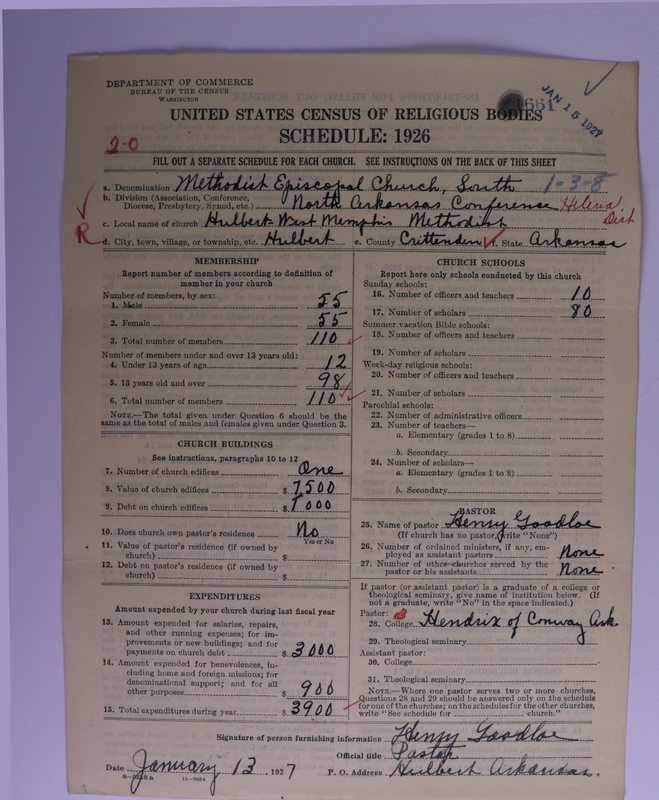 DEPARTMENT OF COMMERCE
BUREAU OF THE CENSUS
WASHINGTON
1661
JAN 15 1927
UNITED STATES CENSUS OF RELIGIOUS BODIES
SCHEDULE: 1926
2-0
FILL OUT A SEPARATE SCHEDULE FOR EACH CHURCH. SEE INSTRUCTIONS ON THE BACK OF THIS SHEET
a. Denomination Methodist Episcopal Church, South 1-3-8
b. Division (Association, Conference, Diocese, Presbytery, Synod, etc.) North Arkansas Conference Helena Dist
c. Local name of church Hulbert-West Memphis Methodist
R
d. City, town, village, or township, etc. Hulbert e. County Crittenden f. State Arkansas
MEMBERSHIP
Report number of members according to definition of
member in your church
Number of members, by sex:
1. Male 55
2. Female 55
3. Total number of members 110
Number of members under and over 13 years old:
4. Under 13 years of age 12
5. 13 years old and over 98
6. Total number of members 110
NOTE.—The total given under Question 6 should be the
same as the total of males and females given under Question 3.
CHURCH BUILDINGS
See instructions, paragraphs 10 to 12
7. Number of church edifices One
8. Value of church edifices $ 7,500
9. Debt on church edifices $ 1000
10. Does church own pastor's residence No
Yes or No
11. Value of pastor's residence (if owned by
church) $
12. Debt on pastor's residence (if owned by
church) $
EXPENDITURES
Amount expended by your church during last fiscal year
13. Amount expended for salaries, repairs,
and other running expenses; for im-
provements or new buildings; and for
payments on church debt $ 3000
14. Amount expended for benevolences, in-
cluding home and foreign missions; for
denominational support; and for all
other purposes $ 900
15. Total expenditures during year $ 3900
CHURCH SCHOOLS
Report here only schools conducted by this church
Sunday schools:
16. Number of officers and teachers 10
17. Number of scholars 80
Summer vacation Bible schools:
18. Number of officers and teachers
19. Number of scholars
Week-day religious schools:
20. Number of officers and teachers
21. Number of scholars
Parochial schools:
22. Number of administrative officers
23. Number of teachers—
a. Elementary (grades 1 to 8)
b. Secondary
24. Number of scholars—
a. Elementary (grades 1 to 8)
b. Secondary
PASTOR
25. Name of pastor Henry Goodloe
(If church has no pastor, write "None")
26. Number of ordained ministers, if any, em-
ployed as assistant pastors None
27. Number of other churches served by the
pastor or his assistants None
If pastor (or assistant pastor) is a graduate of a college or
theological seminary, give name of institution below. (If
not a graduate, write "No" in the space indicated.)
Pastor:
28. College Hendrix of Conway Ark.
29. Theological seminary
Assistant pastor:
30. College
31. Theological seminary
NOTE.—Where one pastor serves two or more churches,
Questions 28 and 29 should be answered only on the schedule
for one of the churches; on the schedules for the other churches,
write "See schedule for church."
Signature of person furnishing information Henry Goodloe
Official title Pastor
Date January 13, 1927 P. O. Address Hulbert Arkansas.